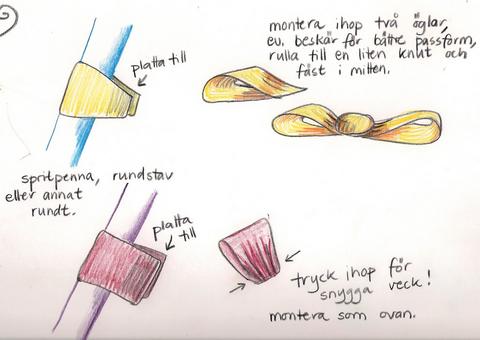 platta till
montera ihop två öglar,
ev. beskär för bättre passform,
rulla till en liten knut och
fäst i mitten.
spritpenna, rundstav
eller annat
rundt.
platta
till
tryck ihop för
snygga veck!
montera som ovan.